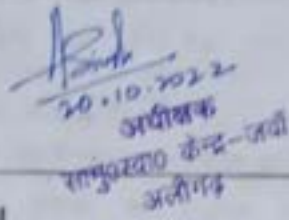 20.10.2022
अधीक्षक
सामु०स्वा० केन्द्र-जवाँ
अलीगढ़